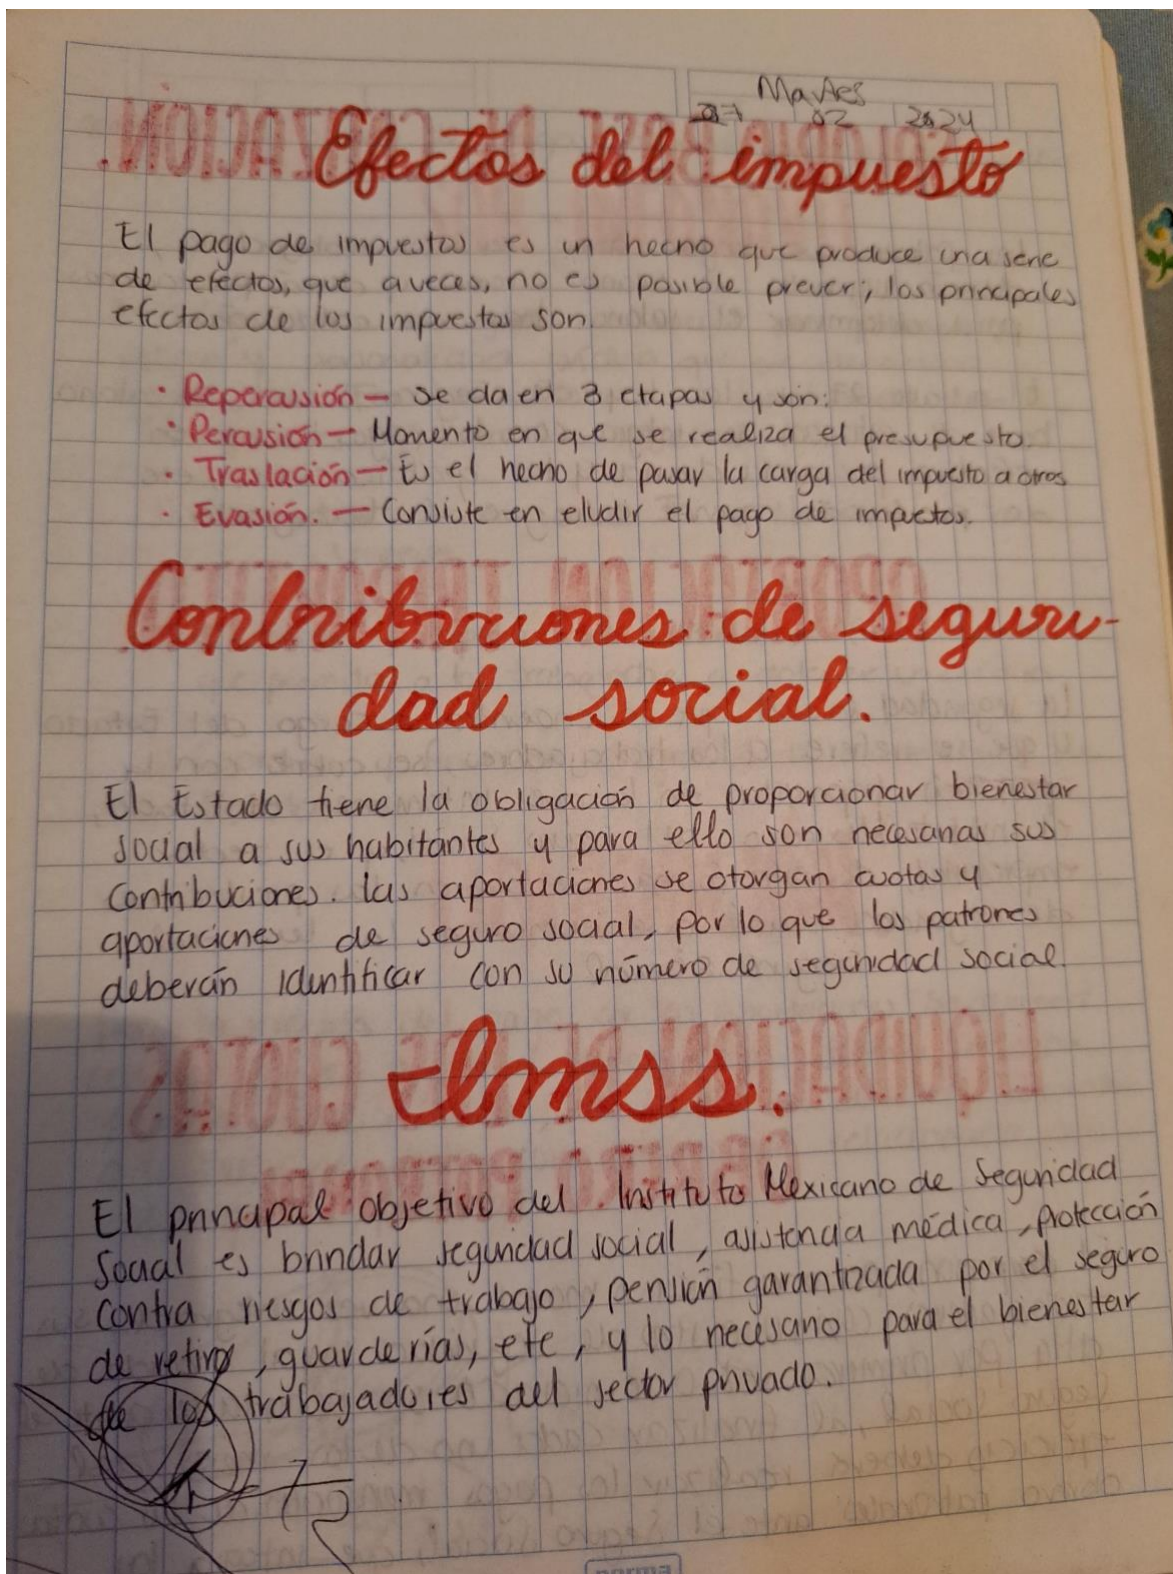 Martes
27 02 2024
Efectos del impuesto
El pago de impuestos es un hecho que produce una serie
de efectos, que aveces, no es posible prever, los principales
efectos de los impuestos son.
· Repercusión — Se da en 3 etapas y son:
· Percusión — Momento en que se realiza el presupuesto.
· Traslación — Es el hecho de pasar la carga del impuesto a otros
· Evasión. — Consiste en eludir el pago de impuetos.
Contribuciones de seguri-
dad social.
El Estado tiene la obligación de proporcionar bienestar
social a sus habitantes y para ello son necesarias sus
contribuciones. las aportaciones se otorgan cuotas y
aportaciones de seguro social, por lo que los patrones
deberán identificar con su número de seguridad social.
Imss.
El principal objetivo del Instituto Mexicano de Seguridad
Social es brindar seguridad social, asistencia médica, protección
contra riesgos de trabajo, pensión garantizada por el seguro
de retiro, guarderías, etc, y lo necesario para el bienestar
de los trabajadores del sector privado.
norma